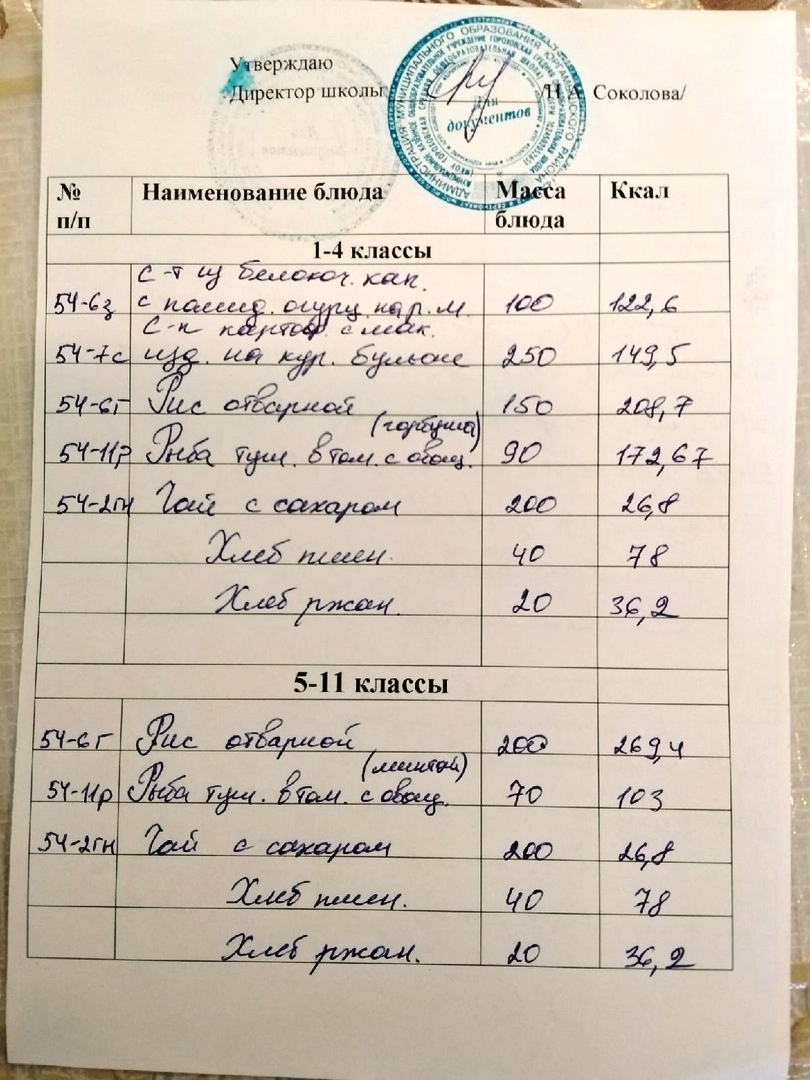 Утверждаю
Директор школы /Н.А. Соколова/
Для документов
№ п/п Наименование блюда Масса блюда Ккал
1-4 классы
с-т из белокоч. кап.
54-6з с помид. огурц. на р.м. 100 122,6
С-п картоф. с мак.
54-7с изд. на кур. бульоне 250 149,5
54-6г Рис отварной 150 208,7
(горбуша)
54-11р Рыба туш. в том. с овощ. 90 172,67
54-2гн Чай с сахаром 200 26,8
Хлеб пшен. 40 78
Хлеб ржан. 20 36,2
5-11 классы
54-6г Рис отварной 200 269,4
(минтай)
54-11р Рыба туш. в том. с овощ. 70 103
54-2гн Чай с сахаром 200 26,8
Хлеб пшен. 40 78
Хлеб ржан. 20 36,2